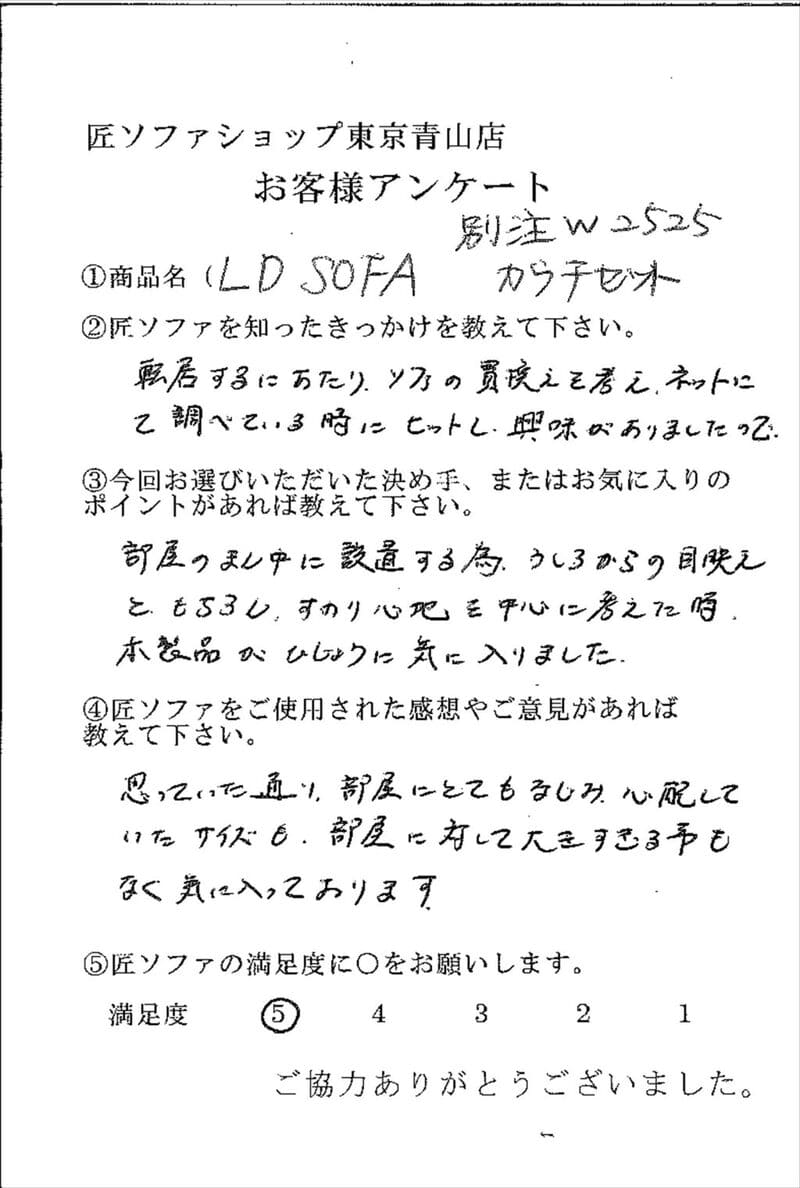 匠ソファショップ東京青山店
お客様アンケート
別注W2525
①商品名（LD SOFA カウチセット
②匠ソファを知ったきっかけを教えて下さい。
転居するにあたり、ソファの買換えを考え、ネットに
て調べている時にヒットし、興味がありましたので
③今回お選びいただいた決め手、またはお気に入りの
ポイントがあれば教えて下さい。
部屋のまん中に設置する為、うしろからの目映え
ともちろん、すわり心地を中心に考えた時、
本製品がひじょうに気に入りました。
④匠ソファをご使用された感想やご意見があれば
教えて下さい。
思っていた通り、部屋にとてもなじみ、心配して
いたサイズも、部屋に対して大きすぎる事も
なく気に入っております
⑤匠ソファの満足度に〇をお願いします。
満足度 5 4 3 2 1
ご協力ありがとうございました。